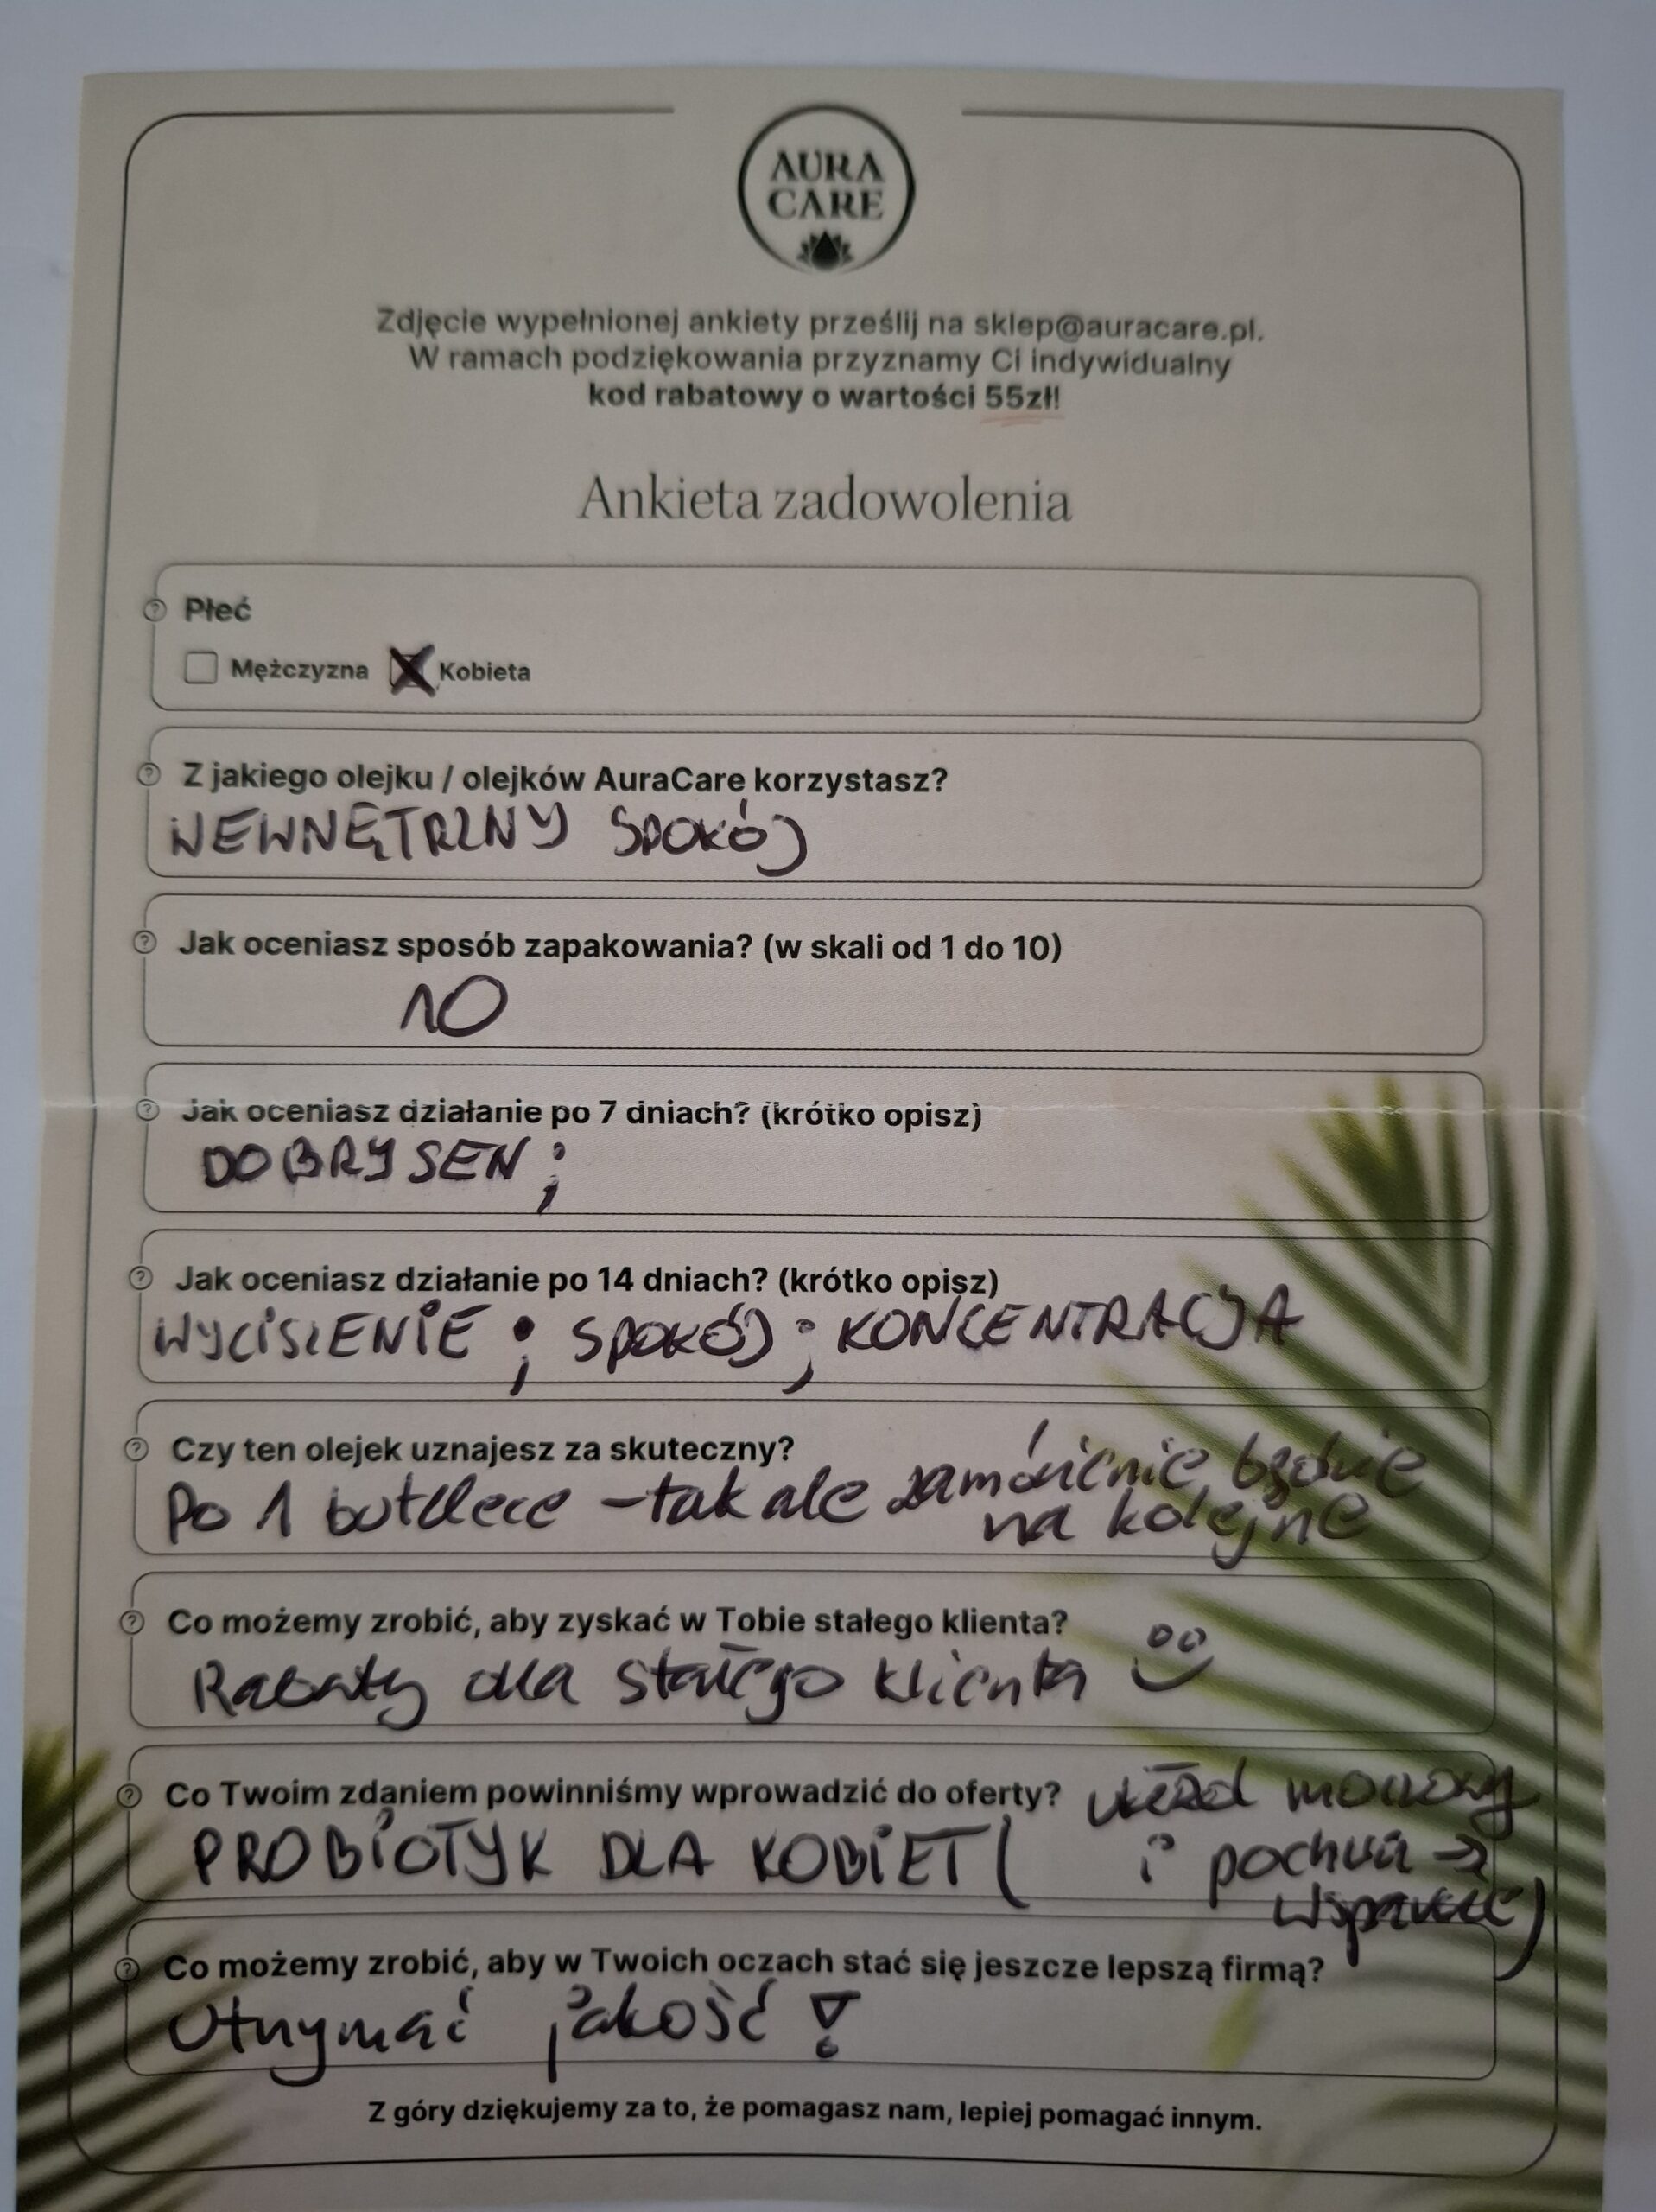 AURA
CARE
Zdjęcie wypełnionej ankiety prześlij na sklep@auracare.pl.
W ramach podziękowania przyznamy Ci indywidualny
kod rabatowy o wartości 55zł!
Ankieta zadowolenia
Płeć
Mężczyzna X Kobieta
Z jakiego olejku / olejków AuraCare korzystasz?
WEWNĘTRZNY SPOKÓJ
Jak oceniasz sposób zapakowania? (w skali od 1 do 10)
10
Jak oceniasz działanie po 7 dniach? (krótko opisz)
DOBRY SEN;
Jak oceniasz działanie po 14 dniach? (krótko opisz)
WYCISZENIE; SPOKÓJ; KONCENTRACJA
Czy ten olejek uznajesz za skuteczny?
Po 1 butelece - tak ale zamówienie będzie
na kolejne
Co możemy zrobić, aby zyskać w Tobie stałego klienta?
Rabaty dla stałego klienta
Co Twoim zdaniem powinniśmy wprowadzić do oferty? układ moczowy
PROBIOTYK DLA KOBIET ( i pochwa →
wsparcie)
Co możemy zrobić, aby w Twoich oczach stać się jeszcze lepszą firmą?
Utrzymać jakość!
Z góry dziękujemy za to, że pomagasz nam, lepiej pomagać innym.